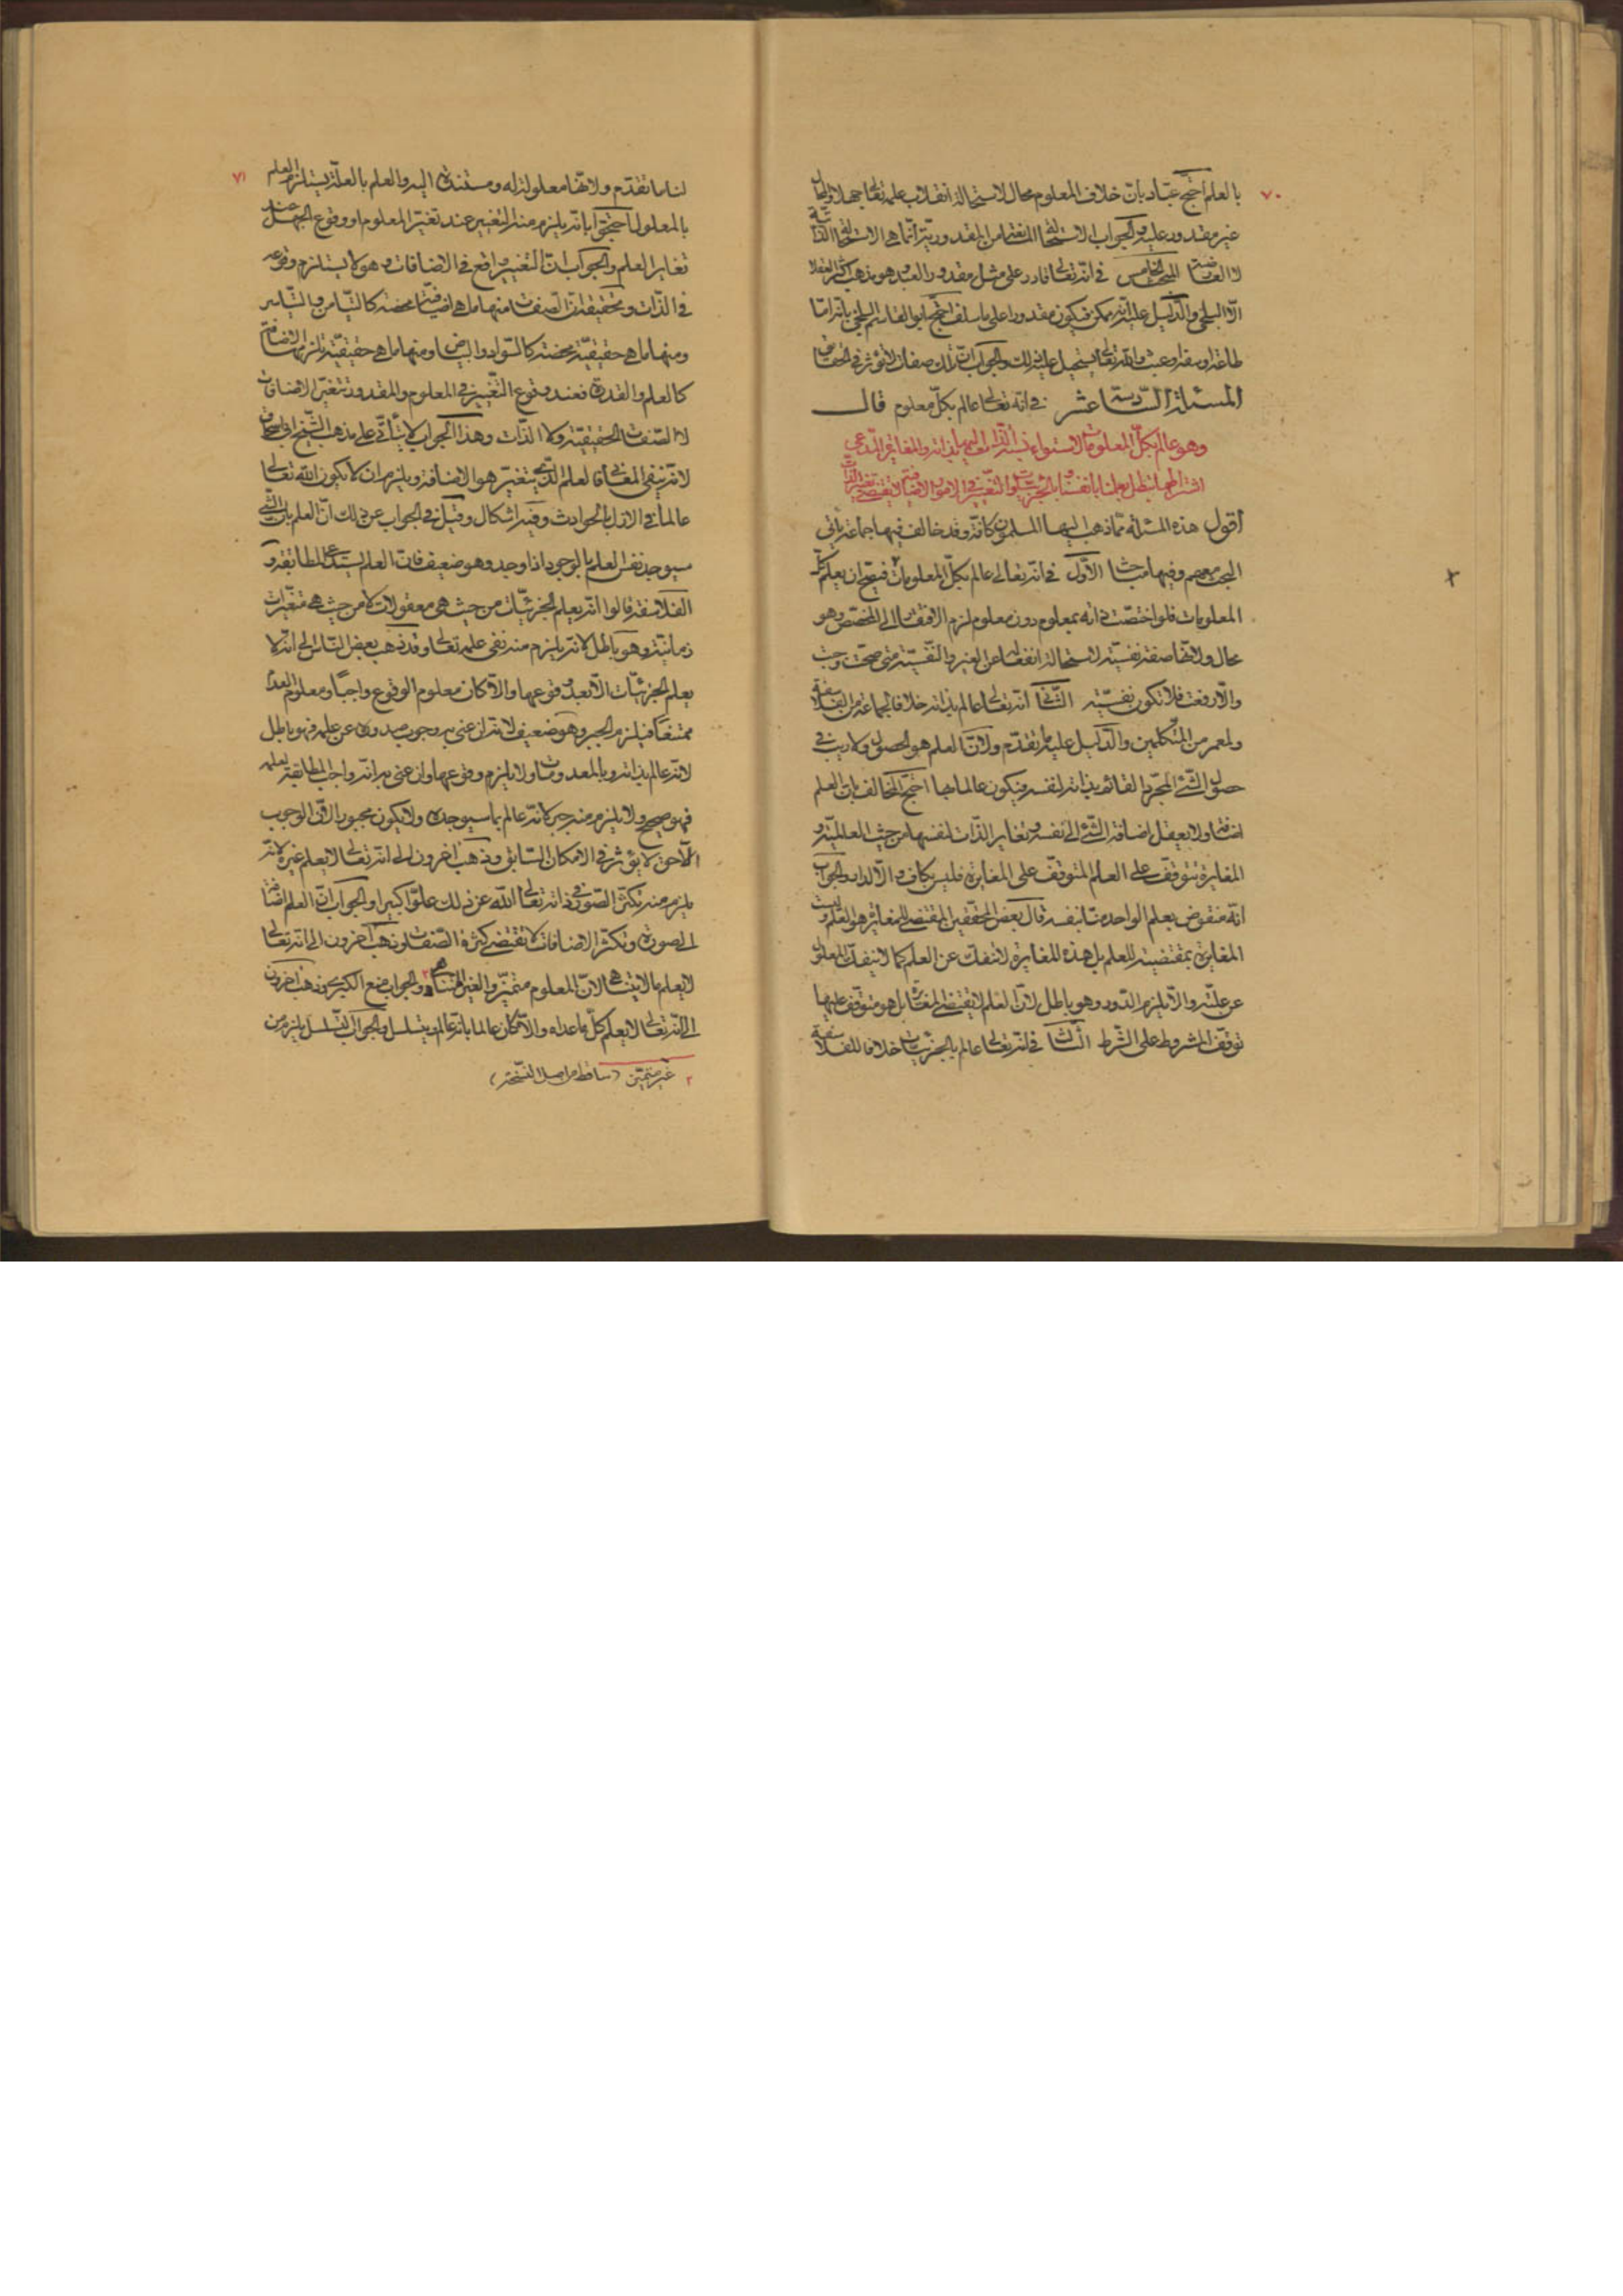 ٧٠
بالعلم احتج عباد بان خلاف المعلوم محال لاستحالة انقلاب علمه تعالى جهلا والمحال
غير مقدور عليه والجواب الاستحالة المانعة من المقدورية انما هى الاستحالة الذاتية
لا العارضة البحث الخامس فى انه تعالى قادر على مثل مقدور العبد وهو مذهب اكثر العقلاء
الا البلخى والدليل عليه انه ممكن فيكون مقدورا على ما سلف احتج ابو القاسم البلخى بانه اما
طاعة او سفه او عبث والله تعالى يستحيل عليه ذلك والجواب ان تلك صفات لا تؤثر فى الحقائق
المسئلة السادسة عشر فى انه تعالى عالم بكل معلوم قال
وهو عالم بكل المعلومات لاستواء نسبة الذات اليها بذاته والمغايرة المدعى
اشتراطها يبطل بعلمنا بانفسنا وبالجزئيات والتغير فى الامور الاضافية لا يقتضى تغير الذات
أقول هذه المسئلة مما ذهب اليها المسلمون كافة وقد خالف فيها جماعة يأتى
البحث معهم وفيها مباحث الأول فى انه تعالى عالم بكل المعلومات فيصح ان يعلم كل
المعلومات فلو اختصت ذاته بمعلوم دون معلوم لزم الافتقار الى المخصص وهو
محال ولانها صفة نفسية لاستحالة انفعاله عن الغير والنفسية متى صحت وجبت
والا ارتفعت فلا تكون نفسية الثانى انه تعالى عالم بذاته خلافا لجماعة من الفلاسفة
ولمعمر من المتكلمين والدليل عليه ما تقدم ولان العلم هو الحصول ولا ريب فى
حصول الشئ المجرد القائم بذاته لنفسه فيكون عالما بها احتج المخالف بان العلم
اضافة ولا يعقل اضافة الشئ الى نفسه وتغاير الذات لنفسها من حيث العالمية و
المغايرة تتوقف على العلم المتوقف على المغايرة فليس بكاف والا لدار والجواب
انه منقوض بعلم الواحد منا بنفسه قال بعض المحققين المقتضى للمغايرة هو العلم وليست
المغايرة بمقتضية للعلم بل هذه المغايرة لا تنفك عن العلم كما لا ينفك المعلول
عن علته والا يلزم الدور وهو باطل لان العلم لا يقتضى المغايرة بل هو متوقف عليها
توقف المشروط على الشرط الثالث فى انه تعالى عالم بالجزئيات خلافا للفلاسفة
٧١
لنا ما تقدم ولانها معلولة له ومستندة اليه والعلم بالعلة يستلزم العلم
بالمعلول احتجوا بانه يلزم منه التغير عند تغير المعلوم او وقوع الجهل عند
تغاير العلم والجواب ان التغير واقع فى الاضافات وهو لا يستلزم وقوعه
فى الذات وتحقيقه ان الصفات منها ما هى اضافية محضة كالتيامن والتياسر
ومنها ما هى حقيقية محضة كالسواد والبياض ومنها ما هى حقيقية يلزمها الاضافة
كالعلم والقدرة فعند وقوع التغير فى المعلوم والمقدور تتغير الاضافات
لا الصفات الحقيقية ولا الذات وهذا الجواب لا يتأتى على مذهب الشيخ ابى اسحاق
لانه ينفى المعانى فالعلم الذى يتغير هو الاضافة ويلزم ان لا يكون الله تعالى
عالما فى الازل بالحوادث وفيه اشكال وقيل فى الجواب عن ذلك ان العلم بان الشئ
سيوجد نفس العلم بالوجود اذا وجد وهو ضعيف فان العلم يستدعى المطابقة و
الفلاسفة قالوا انه يعلم الجزئيات من حيث هى معقولات لا من حيث هى متغيرات
زمانية وهو باطل لانه يلزم منه نفى علمه تعالى وقد ذهب بعض الناس الى انه لا
يعلم الجزئيات الا بعد وقوعها والا كان معلوم الوقوع واجبا ومعلوم العدم
ممتنعا فيلزم الجبر وهو ضعيف لانه ان عنى به وجوب صدوره عن علمه فهو باطل
لانه عالم بذاته وبالمعدومات ولا يلزم وقوعها وان عنى به انه واجب المطابقة لعلمه
فهو صحيح ولا يلزم منه جبر لانه عالم بما سيوجده ولا يكون مجبورا لان الوجوب
اللاحق لا يؤثر فى الامكان السابق وذهب آخرون الى انه تعالى لا يعلم غيره لانه
يلزم منه تكثر الصور فى ذاته تعالى الله عن ذلك علوا كبيرا والجواب ان العلم اضافة
لا صورة وتكثر الاضافات لا يقتضى كثرة الصفات وذهب آخرون الى انه تعالى
لا يعلم ما لا يتناهى لان المعلوم متميز والغير المتناهى ٢ والجواب منع الكبرى وذهب آخرون
الى انه تعالى لا يعلم كل ما عداه والا لكان عالما بانه عالم ويتسلسل والجواب التسلسل يلزم من
٢ غير متميز (ساقط من اصل النسخة)